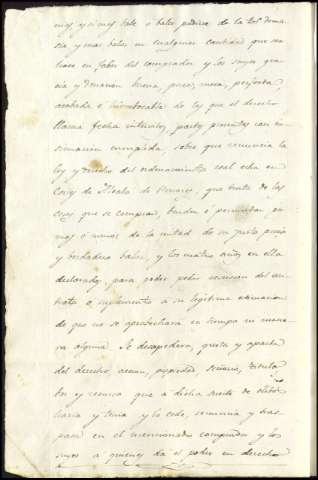 mas, y si mas bale o baler pudiere de la tal dema-
sia, y mas balor en cualquier cantidad que sea
hace en fabor del comprador y los suyos gra-
cia y donacion buena, pura, mera, perfecta,
acabada e irrebocable de las que el derecho
llama fecha intervibos, partes presentes con in-
sinuacion cumplida, sobre que renuncia la
ley y derecho del ordenamiento real echa en
Cortes de Alcala de Henares, que trata de las
cosas que se compran, benden ó permutan por
mas ó menos de la mitad de su justo precio
y berdadero balor, y los cuatro años en ella
declarados para poder pedir recision del con-
trato o suplemento á su legitima estimacion
de que no se aprobechara en tiempo ni mane-
ra alguna. Se desapodera, quita y aparta
del derecho, accion, propiedad, señorio, titulo
bos y recurso que á dicha suerte de
haria y tenia y lo cede, renuncia y tras-
pasa en el mencionado comprador y los
suyos á quienes da el poder en derecho